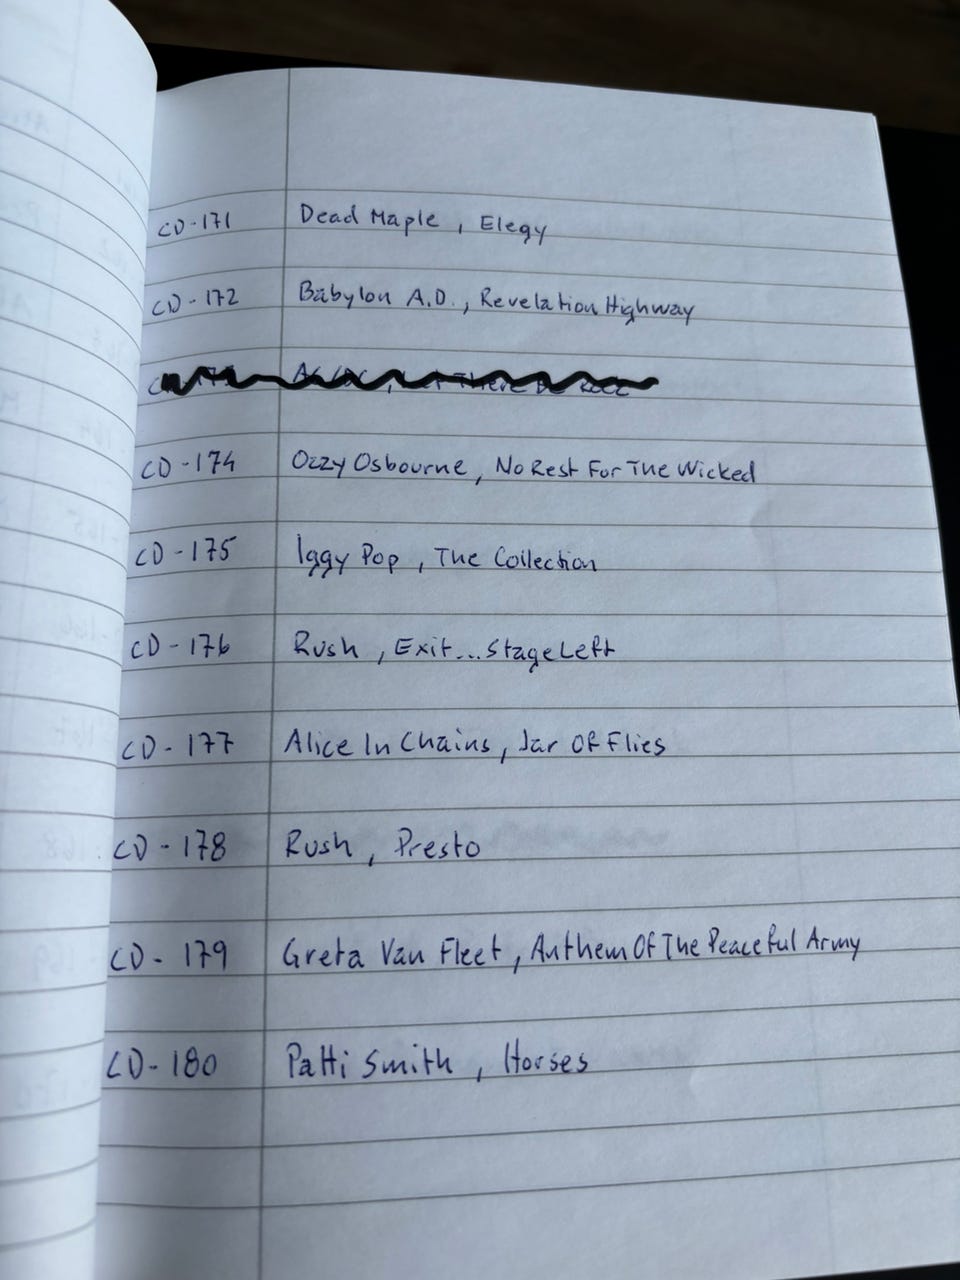 CD-171 Dead Maple, Elegy
CD-172 Babylon A.D., Revelation Highway
There Be Rock
CD-174 Ozzy Osbourne, No Rest For The Wicked
CD-175 Iggy Pop, The Collection
CD-176 Rush, Exit...Stage Left
CD-177 Alice In Chains, Jar Of Flies
CD-178 Rush, Presto
CD-179 Greta Van Fleet, Anthem Of The Peaceful Army
CD-180 Patti Smith, Horses